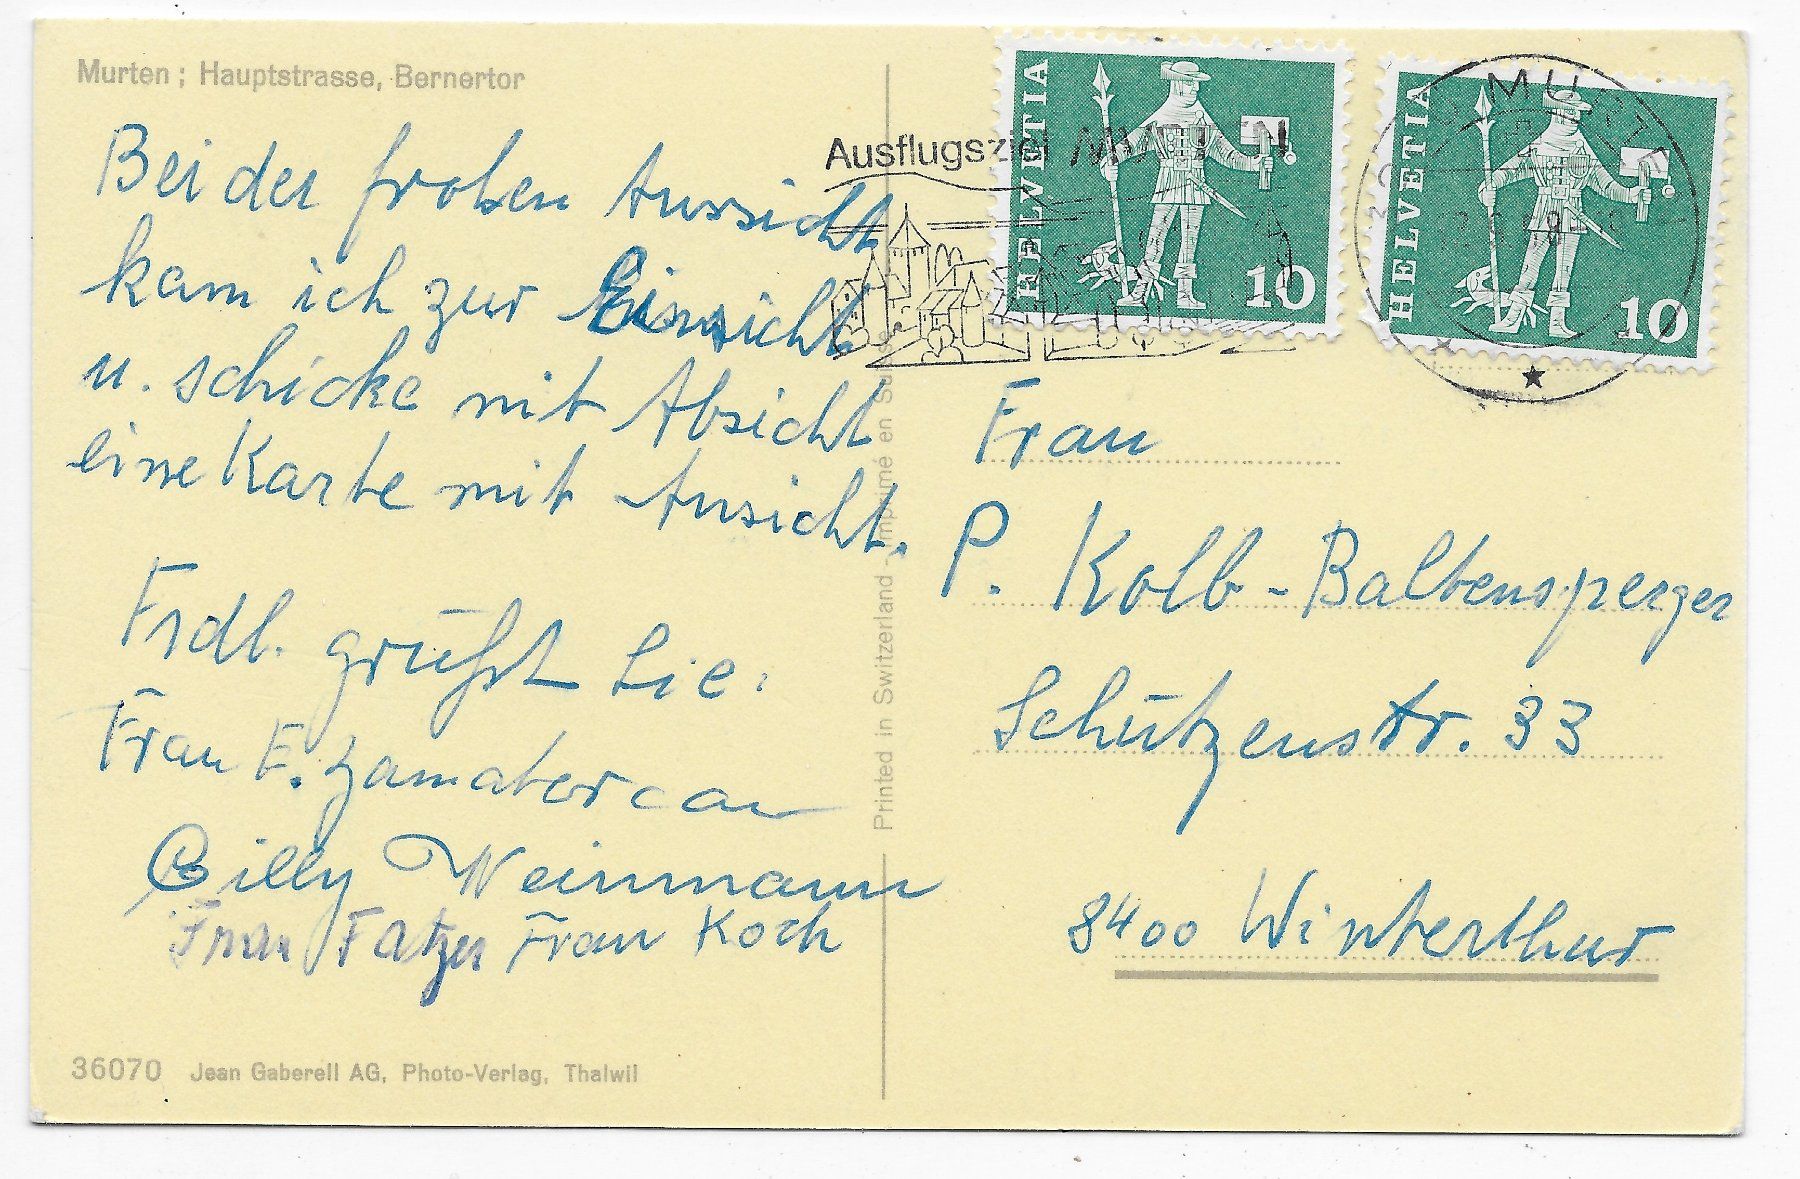 Murten; Hauptstrasse, Bernertor
Bei der frohen Aussicht
kam ich zur Einsicht
u. schicke mit Absicht
eine Karte mit Ansicht.
Frdl. grüßt Sie:
Frau E.
Cilly Weinmann
Frau Fatzer Frau Koch
36070 Jean Gaberell AG, Photo-Verlag, Thalwil
Printed in Switzerland - Imprimé en Suisse
Ausflugsziel MURTEN
HELVETIA
10
HELVETIA
10
MURTEN
Frau
P. Kolb-Baltensperger
Schützenstr. 33
8400 Winterthur